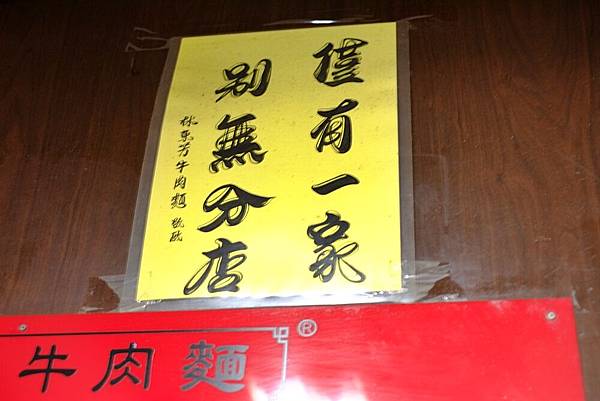 僅有一家
別無分店
林東芳牛肉麵 敬啟
牛肉麵®